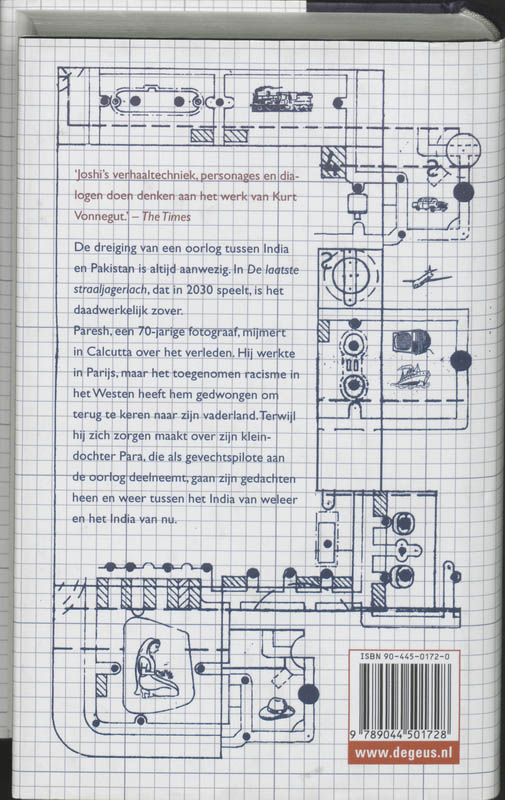 'Joshi's verhaaltechniek, personages en dia-
logen doen denken aan het werk van Kurt
Vonnegut.' – The Times
De dreiging van een oorlog tussen India
en Pakistan is altijd aanwezig. In De laatste
straaljagerlach, dat in 2030 speelt, is het
daadwerkelijk zover.
Paresh, een 70-jarige fotograaf, mijmert
in Calcutta over het verleden. Hij werkte
in Parijs, maar het toegenomen racisme in
het Westen heeft hem gedwongen om
terug te keren naar zijn vaderland. Terwijl
hij zich zorgen maakt over zijn klein-
dochter Para, die als gevechtspilote aan
de oorlog deelneemt, gaan zijn gedachten
heen en weer tussen het India van weleer
en het India van nu.
ISBN 90-445-0172-0
9 789044 501728
www.degeus.nl